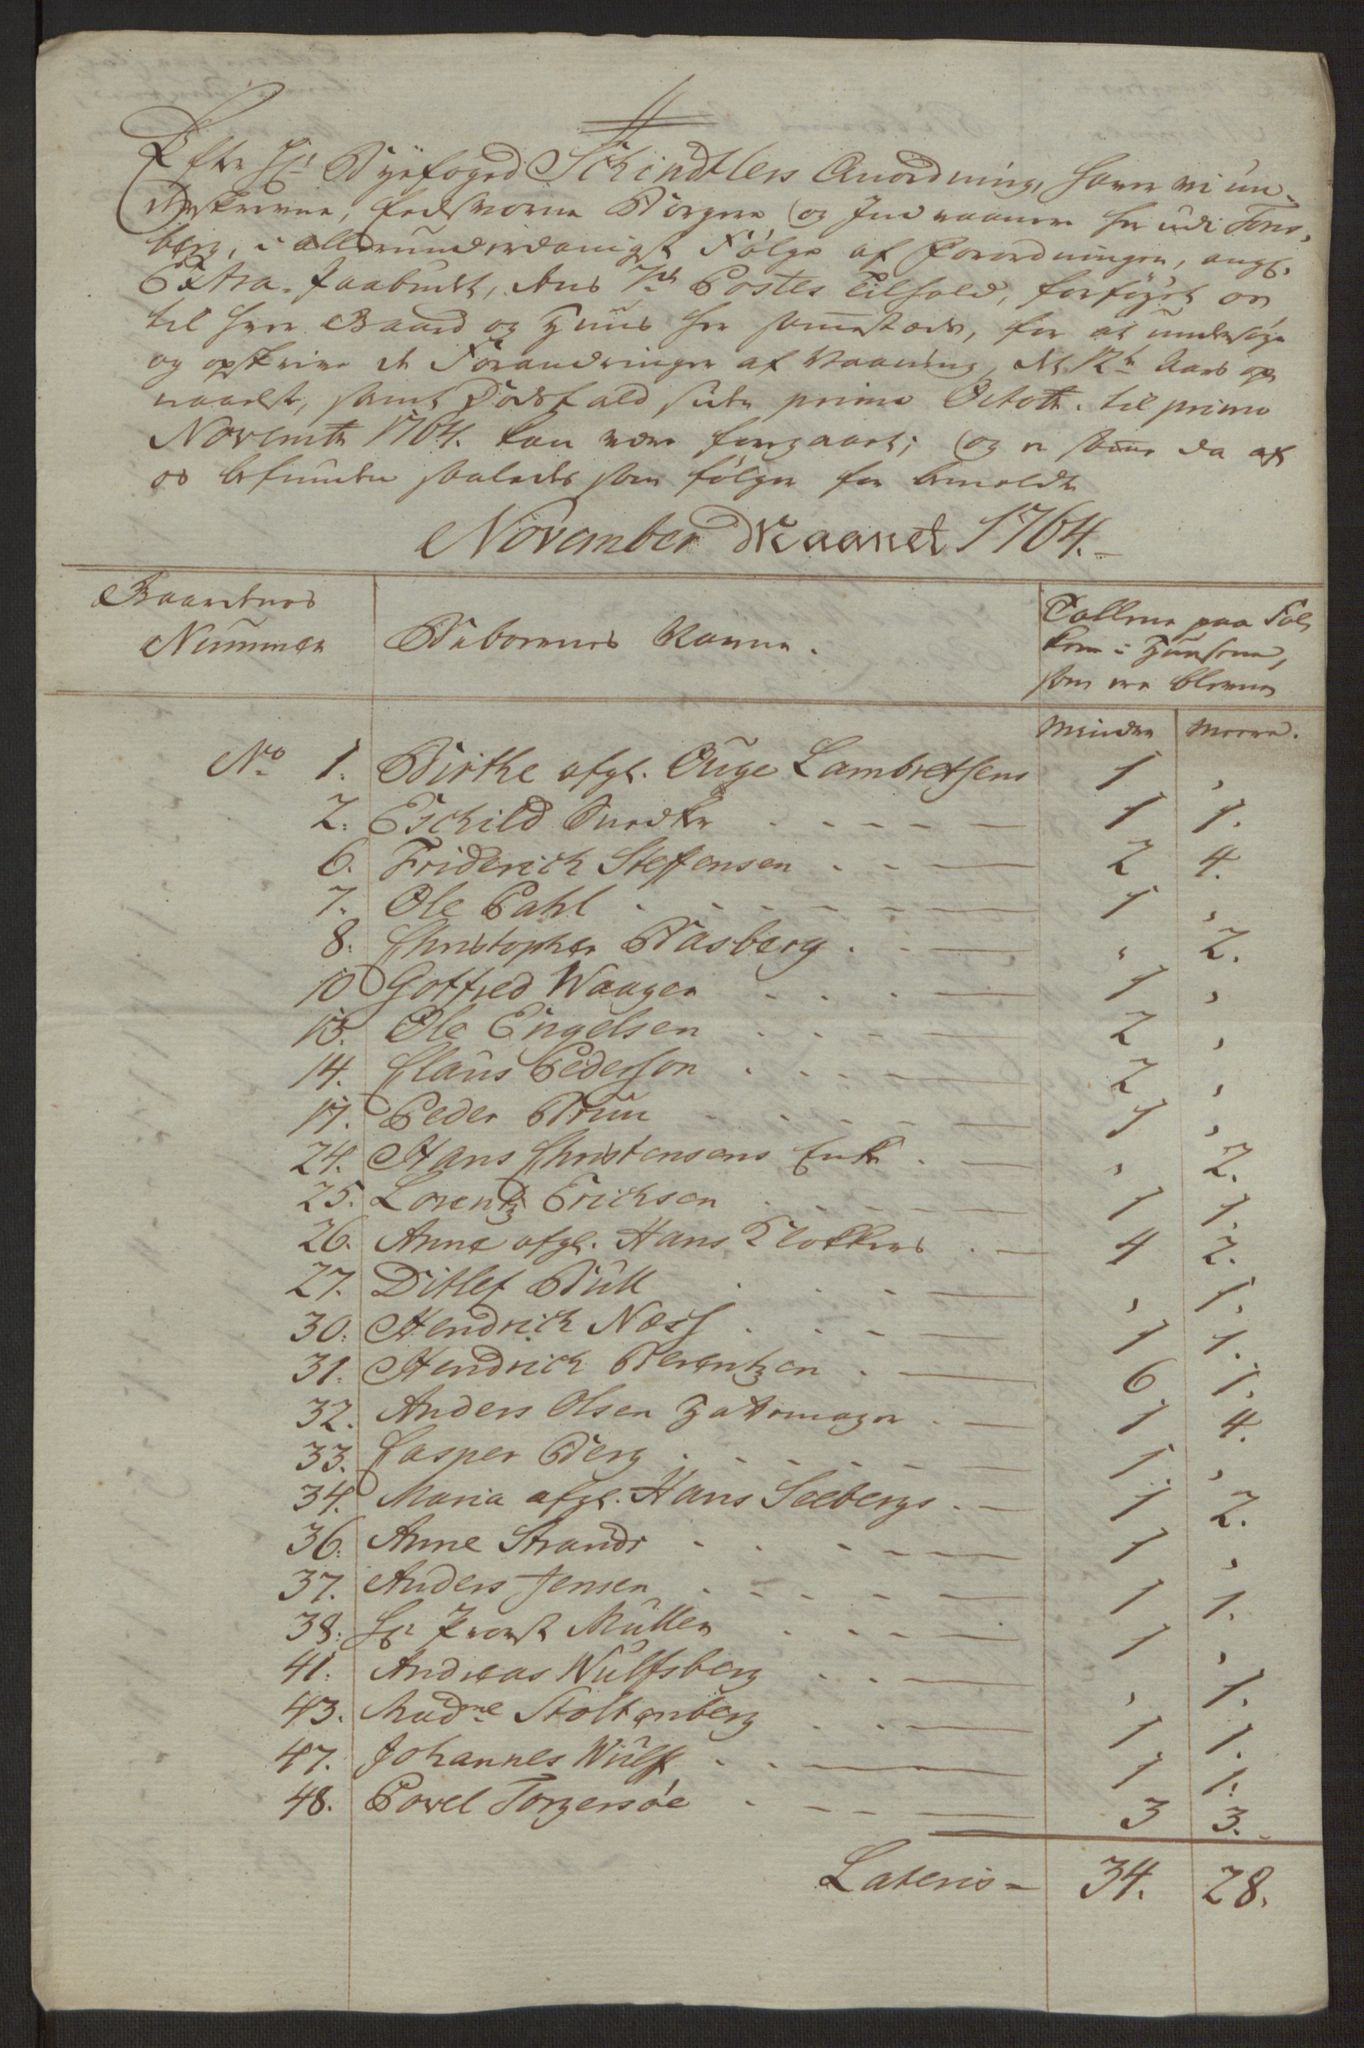 Efter Hr. Byefoged Schindtlers Anordning, have vi un-
derskrevne, Eedsvorne Borgere og Indvaanere her udi Tøns-
berg, i allerunderdanigst Følge af Forordningen, ang:
Extra-Paabudt, dens 7de Postes Tilhold, forføyet os
til hver Gaard og Huus her sammesteds, for at undersøge
og opskrive de Forandringer af Vaaning, det 12te Aars op-
naaelse, samt Dødsfald siden primo Octobr. til primo
Novembr 1764. kan være foregaaet; og er samme da af
os befunden saaledes som følger for bemeldte
November Maanet 1764.
Gaardenes
Nummer
Beboernes Navne.
Tallene paa Fol-
kene i Huusene,
som ere blevne
Minder Meere.
No. 1. Birthe afgl. Ouge Lambretsens 1 ,
2. Eschild Snedker 1 1.
6. Friderich Steffensen 2 4.
7. Ole Pahl 1 ,
8. Christopher Basberg , 2.
10 Gotfred Waagen 1 ,
13. Ole Engelsen 2 ,
14. Claus Pedersson 2 ,
17. Peder Bruu 1 ,
24. Hans Christensens Enke , 2.
25. Lorentz Erichsen 1 1.
26. Anne afgl. Hans Klokkers 4 2.
27. Ditlef Bull , 1.
30. Hendrich Næss 1 1.
31. Hendrich Berentzen 6 1.
32. Anders Olsen Hattemager 1 4.
33. Casper Berg 1 ,
34. Maria afgl. Hans Seebergs 1 2.
36. Anne Strands 1 ,
37. Anders Jensen 1 1.
38. Hr. Provst Müller 1 ,
41. Andreas Wulfsberg , 1.
43. Madme Stoltenberg 1 1.
47. Johannes Wulf 1 1.
48. Povel Torgersøe 3 3.
Lateris 34. 28.